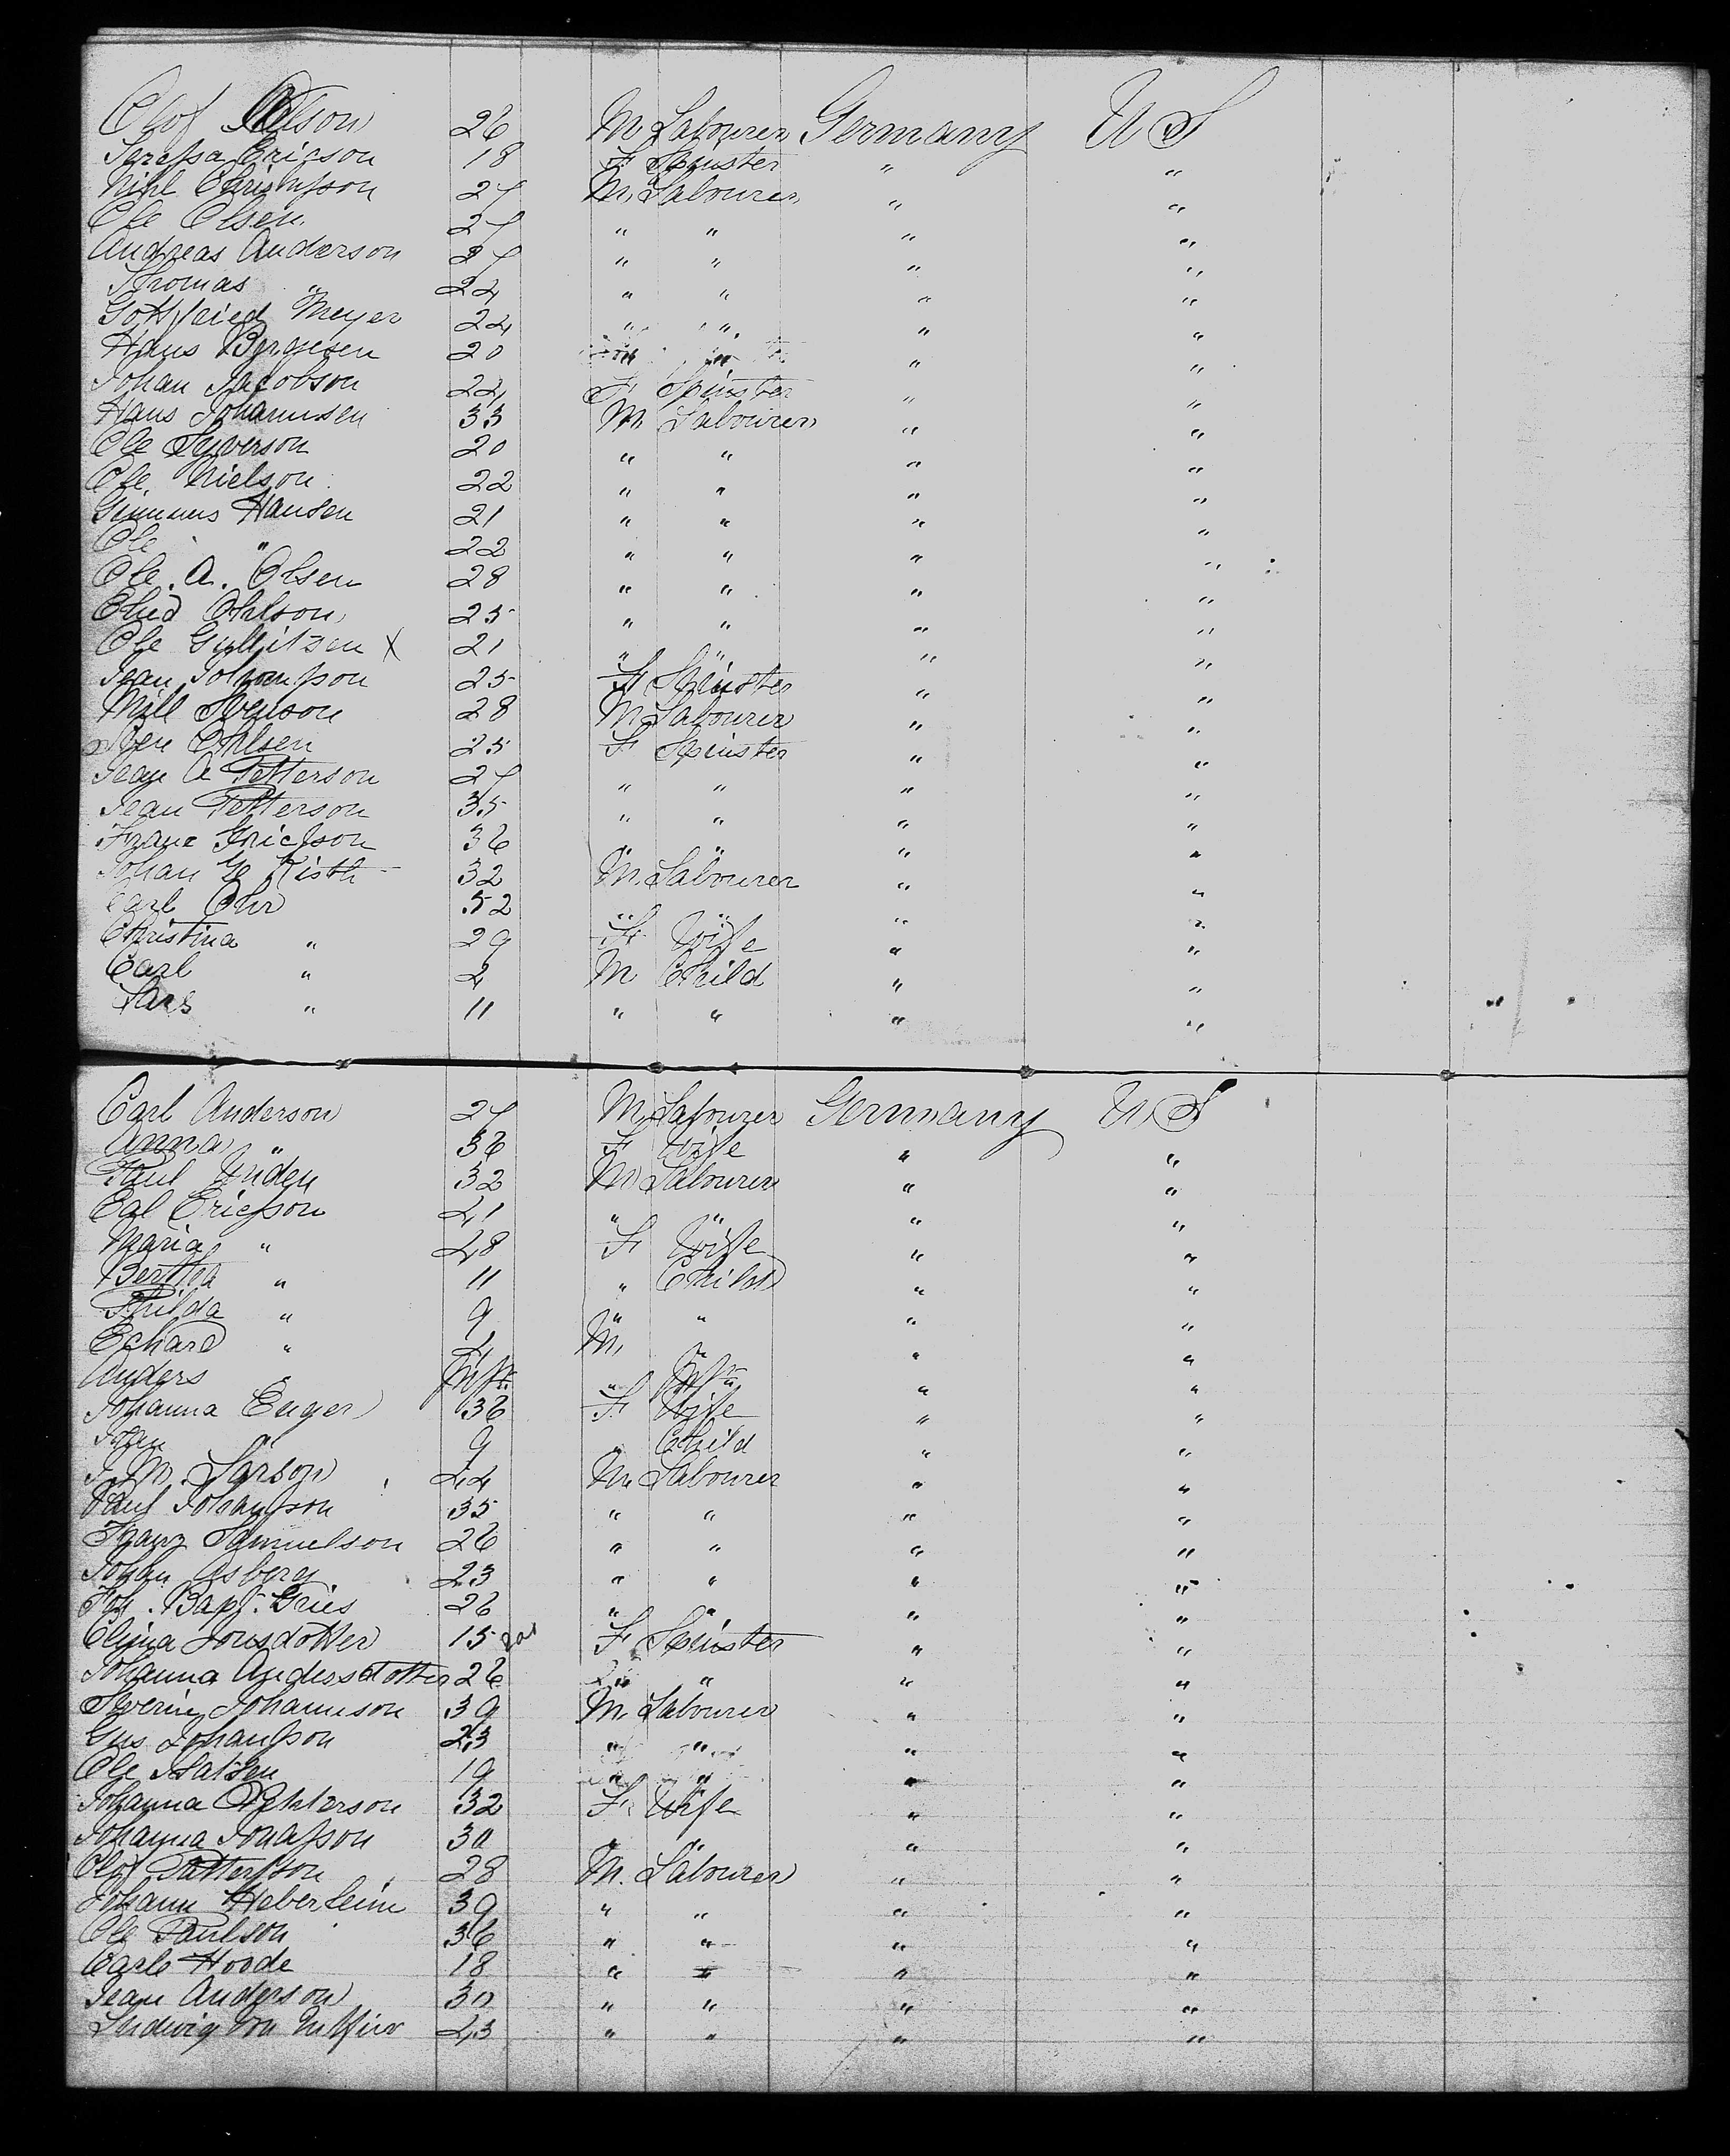 Olof Olson 26 M Labourer Germany U S
Ericson 18 F Spinster " "
Christufson 27 M. Labourer " "
Ole Olsen 27 " " " "
Andreas Anderson 27 " " " "
Thomas " 24 " " " "
Gottfried Meyer 24 " " " "
Hans 20 " " " "
Johan Jacobson 24 F Spinster " "
Hans Johannsen 33 M. Labourer " "
Ole Syverson 20 " " " "
Ole Nielson 22 " " " "
Hansen 21 " " " "
Ole " 22 " " " "
Ole. A. Olsen 28 " " " "
Ohlson 25 " " " "
Ole Gullitzen X 21 " " " "
Jean 25 F Spinster " "
Svenson 28 M Labourer " "
Ohlsen 25 F Spinster " "
Jean A Petterson 27 " " " "
Jean Petterson 35 " " " "
Franz Erickson 36 " " " "
Johan 32 M. Labourer " "
Carl Ohr 52 " " " "
Christina " 29 F Wife " "
Carl " 4 M Child " "
Lars " 11 " " " "
Carl Anderson 27 M Labourer Germany U S
Anna " 36 F Wife " "
Paul Linden 32 M Labourer " "
Ericsson 41 " " " "
Maria " 48 F Wife " "
Bertha " 11 " Child " "
Thilda " 9 " " " "
Echard " 4 M. " " "
Anders " Inft. " Inft " "
Johanna Enger 36 F Wife " "
" 9 " Child " "
J. M. Larson 44 M. Labourer " "
Paul Johansson 35 " " " "
Franz Samuelson 26 " " " "
Johan Asberg 23 " " " "
Joh. Bapt. Gries 26 " " " "
Jonsdotter 15 F Spinster " "
Johanna Andersdotter 26 " " " "
Johannson 39 M. Labourer " "
Gus Johansson 23 " " " "
Ole 19 " " " "
Johanna 32 F Wife " "
Johanna Jonasson 30 " " " "
Olof Pattersson 28 M. Labourer " "
Johann Heberleim 39 " " " "
Ole Paulson 36 " " " "
Carl Hoode 18 " " " "
Jean Anderson 30 " " " "
Ludwig von 23 " " " "